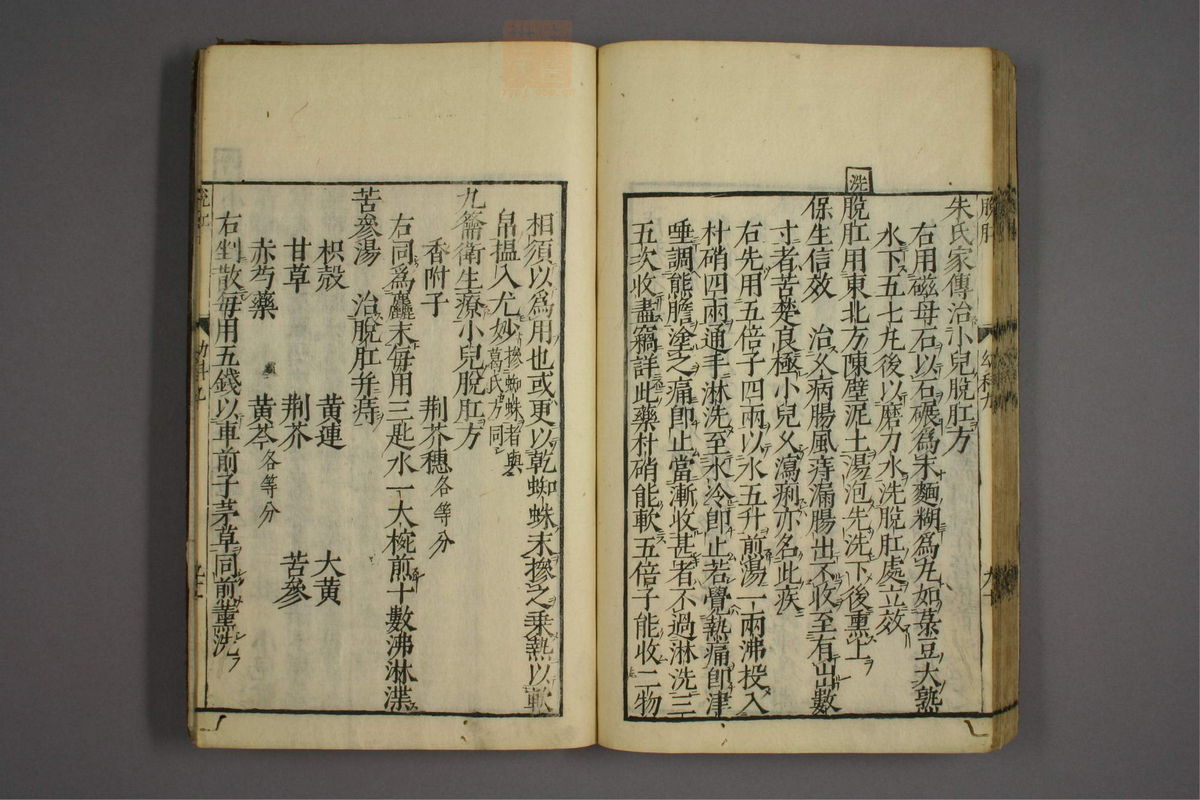 脫肛
幼科九
朱氏家傳治小兒脫肛方
右用磁母石以石碾為末麵糊為丸如菉豆大熟
水下五七丸後以磨刀水洗脫肛處立效
洗
脫肛用東北方陳壁泥土湯泡先洗下後熏上
保生信效　治久病腸風痔漏腸出不收至有出數
寸者苦楚良極小兒久瀉痢亦名此疾
右先用五倍子四兩以水五升煎湯一兩沸投入
朴硝四兩通手淋洗至水冷即止若覺熱痛即津
唾調熊膽塗之痛即止當漸收甚者不過淋洗三
五次收盡竊詳此藥朴硝能軟五倍子能收二物
相須以為用也或更以乾蜘蛛末摻之乗熱以軟
帛揾入尤妙摻蜘蛛者與葛氏方同
九籥衛生療小兒脫肛方
香附子　荆芥穗各等分
右同為麤末毎用三匙水一大椀煎十數沸淋渫
苦參湯　治脫肛并痔
枳殼　黄連　大黄
甘草　荆芥　苦參
赤芍藥　黄芩各等分
右剉散毎用五錢以車前子茅草同煎薫洗